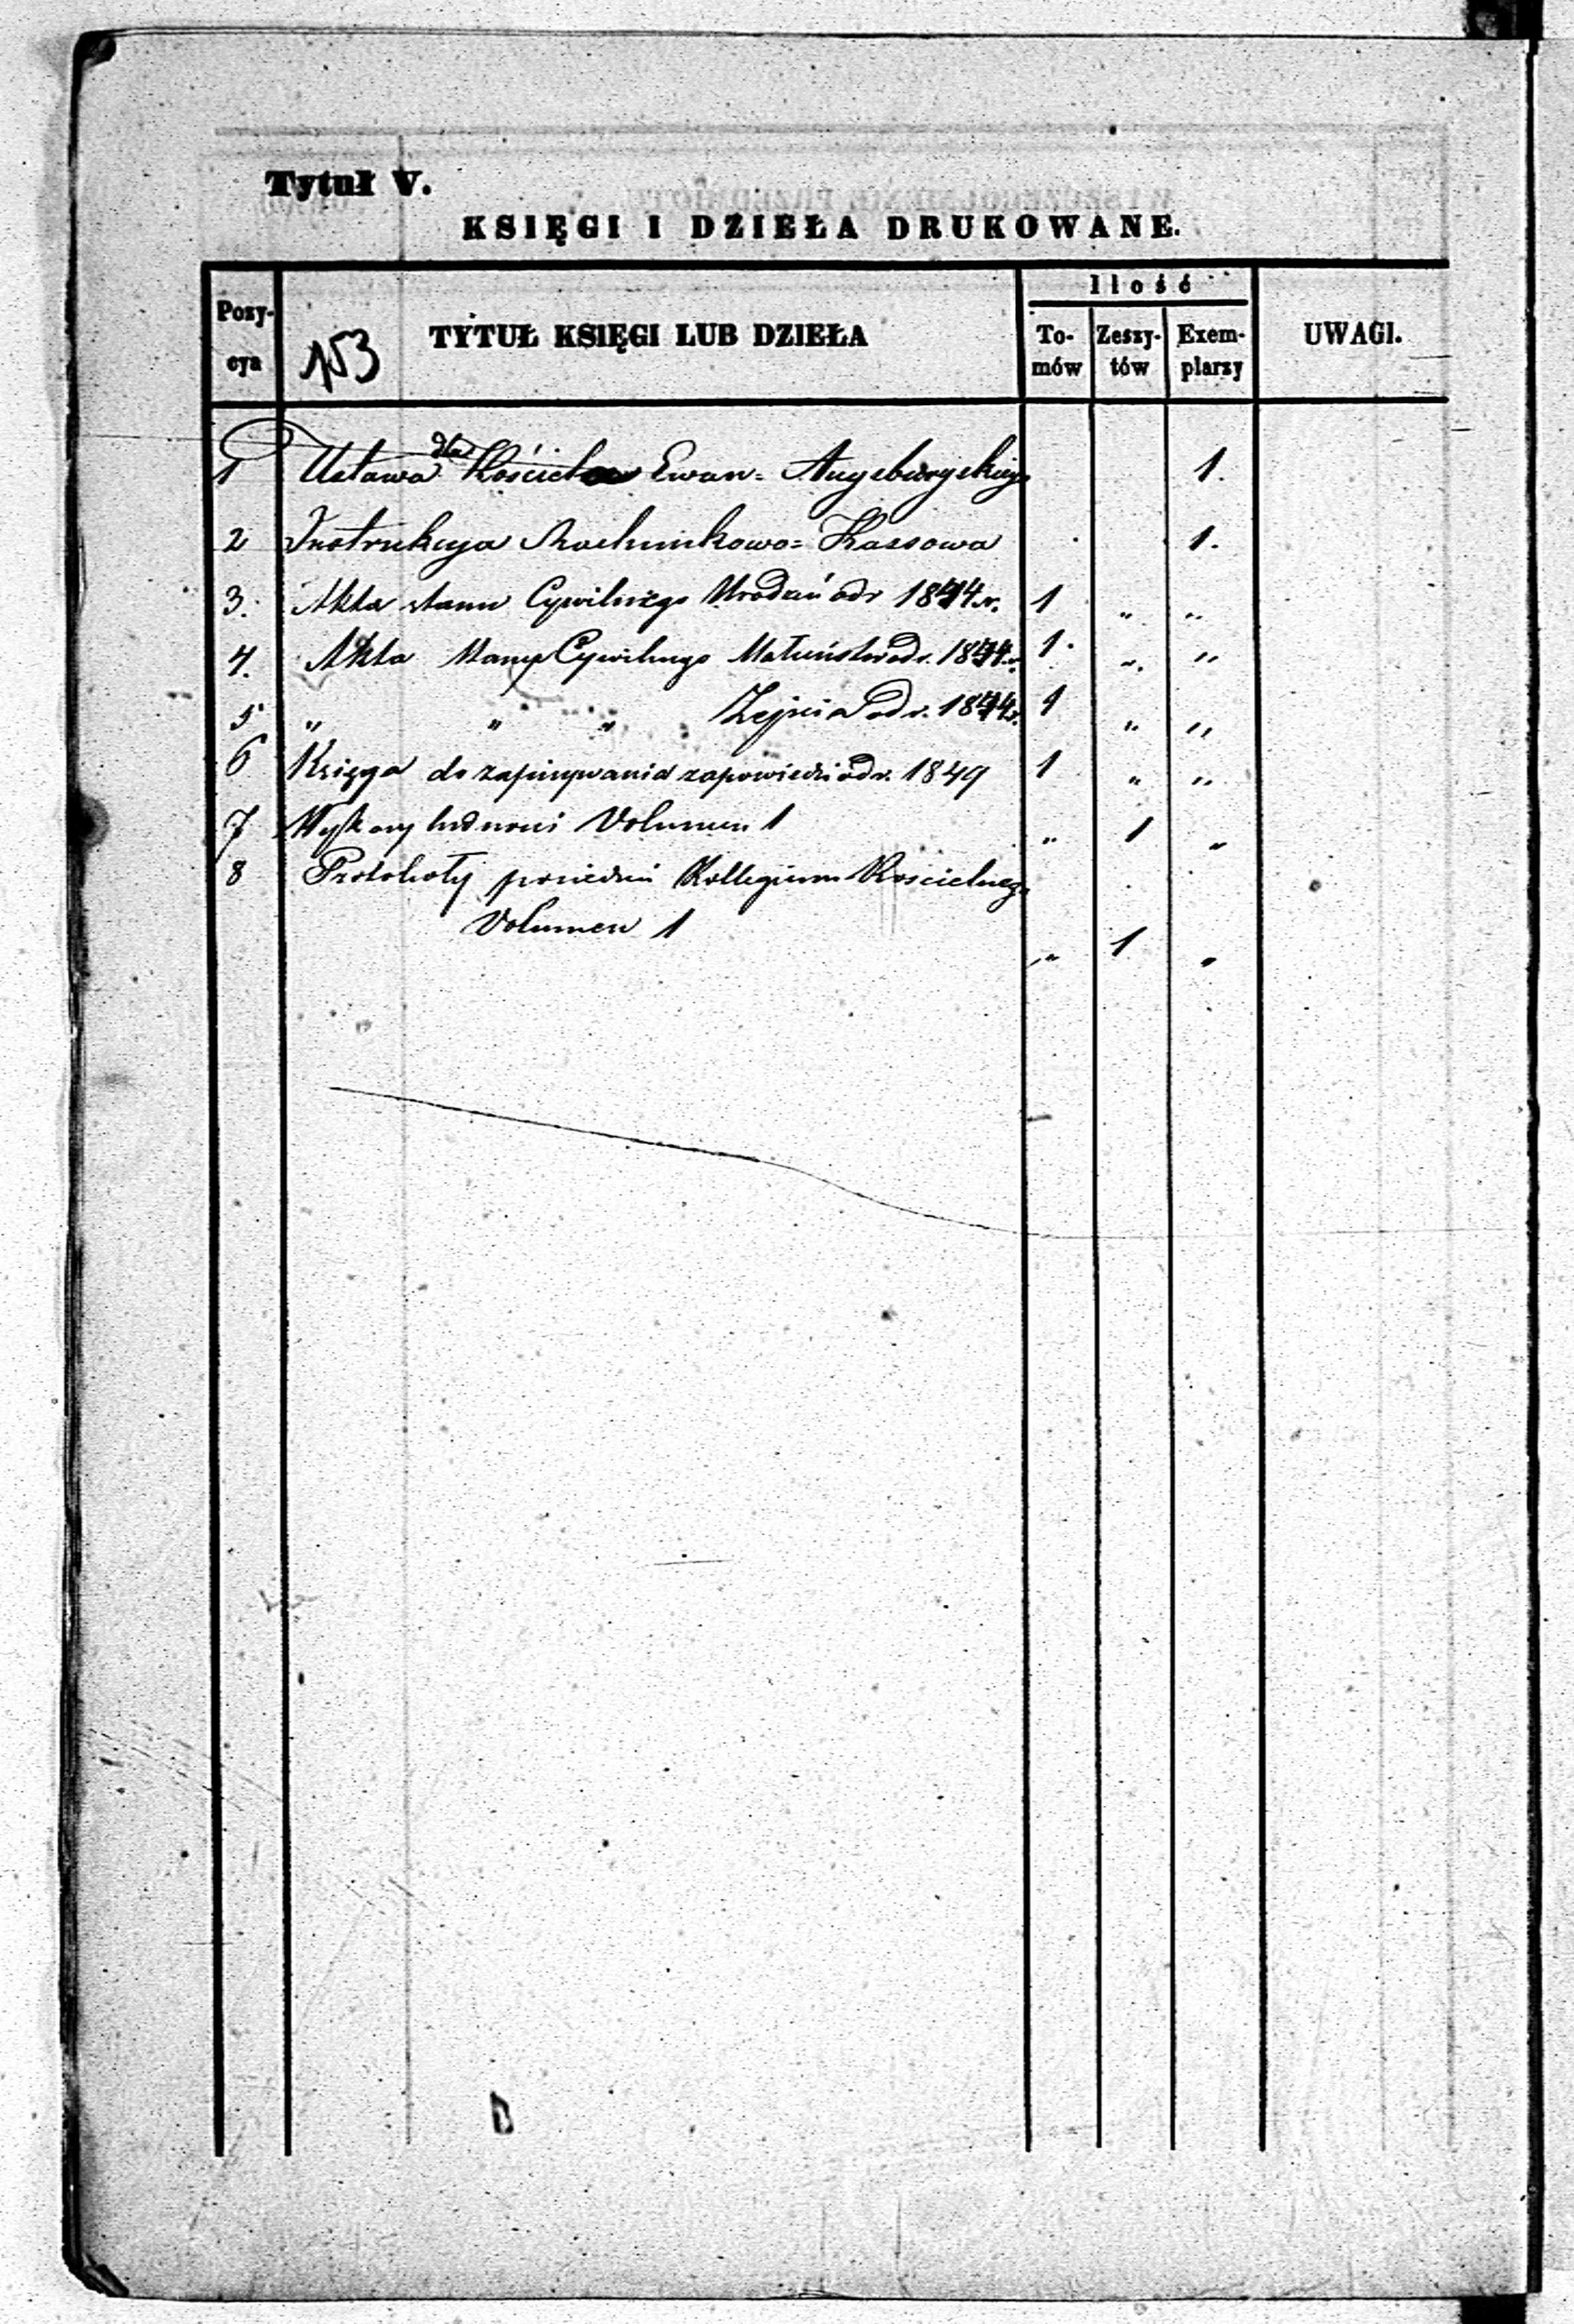 Tytuł V.
KSIĘGI I DZIEŁA DRUKOWANE.
Pozy-
cya
153
TYTUŁ KSIĘGI LUB DZIEŁA
Ilość
To-
mów
Zeszy-
tów
Exem-
plarzy
UWAGI.
1 Ustawa dla Kościoła Ewan= Augsburgskiego 1.
2 Instrukcya Rachunkowo=Kassowa 1.
3. Akta stanu Cywilnego Urodzeń od r 1844 r. 1 „ „
4. Akta Stanu Cywilnego Małżeństw od r. 1844 r. 1. „ „
5 „ „ „ Zejścia od r. 1844 r. 1 „ „
6 Księga do zapisywania zapowiedzi od r. 1849 1 „ „
7 Wykazy ludności Volumen 1 „ 1 „
8 Protokoły posiedzeń Kollegium Kościelnego
Volumen 1 „ 1 „